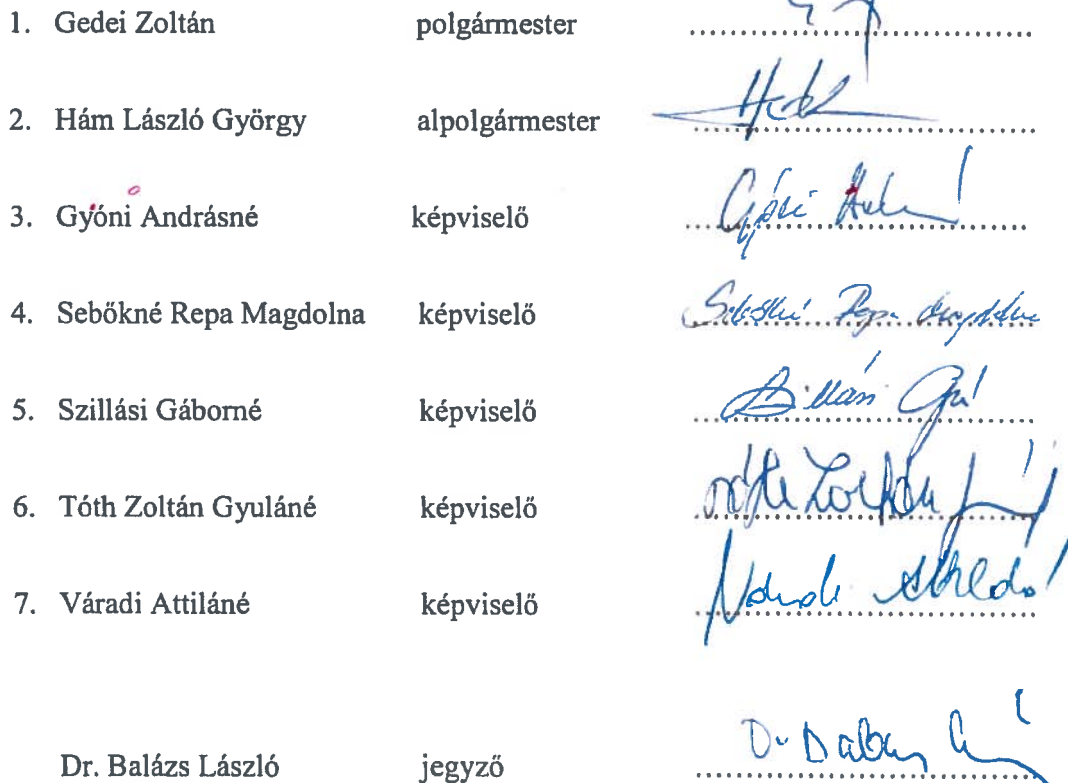 1. Gedei Zoltán polgármester
2. Hám László György alpolgármester
3. Gyóni Andrásné képviselő
4. Sebőkné Repa Magdolna képviselő Sebőkné Repa Magdolna
5. Szillási Gáborné képviselő
6. Tóth Zoltán Gyuláné képviselő Tóth Zoltán
7. Váradi Attiláné képviselő
Dr. Balázs László jegyző Dr Balázs